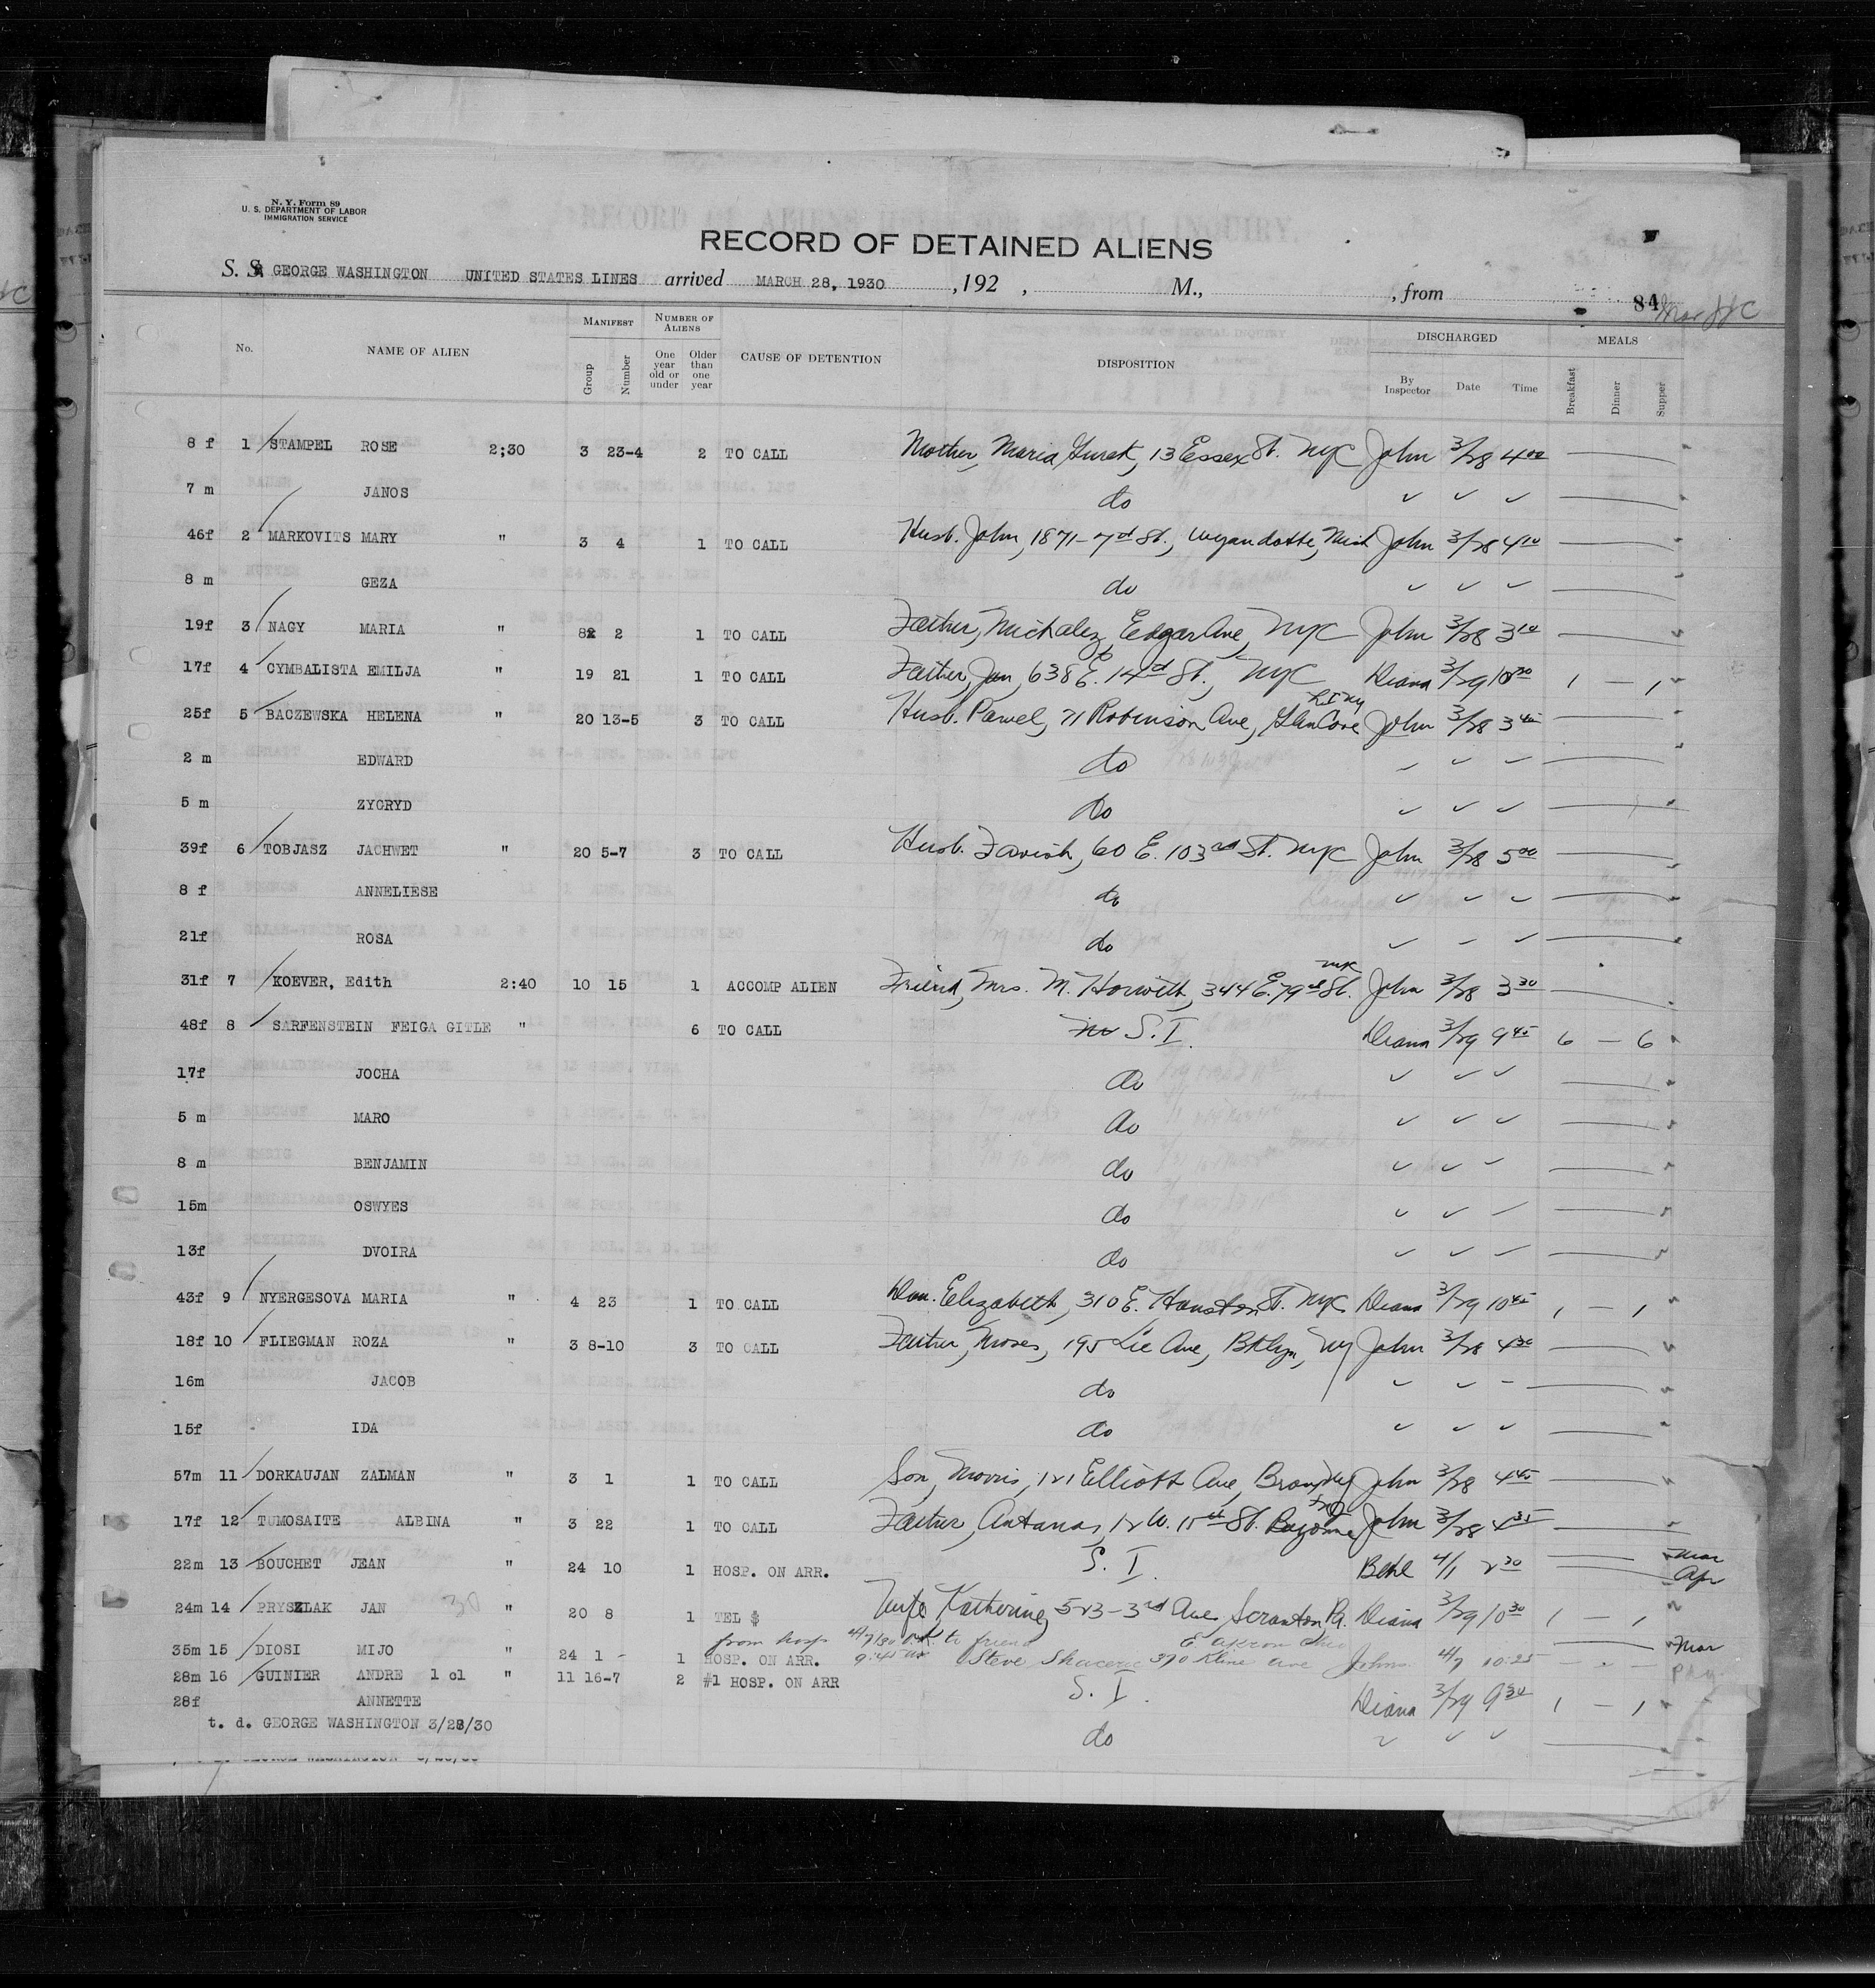 N. Y. Form 89
U. S. DEPARTMENT OF LABOR
IMMIGRATION SERVICE
RECORD OF DETAINED ALIENS
S. S. GEORGE WASHINGTON UNITED STATES LINES arrived MARCH 28, 1930 ,192 , M., , from 84
No. NAME OF ALIEN MANIFEST Group Number NUMBER OF ALIENS One year old or under Older than one year CAUSE OF DETENTION DISPOSITION DISCHARGED By Inspector Date Time MEALS Breakfast Dinner Supper
8 f 1 STAMPEL ROSE 2;30 3 23-4 2 TO CALL Mother, Maria 13 Essex St. NYC John 3/28 4 00
7 m JANOS do
46f 2 MARKOVITS MARY " 3 4 1 TO CALL Husb. John, 1871-7 St., Wyandotte, Mich John 3/28 4 10
8 m GEZA do
19f 3 NAGY MARIA " 8 2 1 TO CALL Father, Edgar Ave, NYC John 3/28 3 10
17f 4 CYMBALISTA EMILJA " 19 21 1 TO CALL Father, Jan, 638 E. 14 St., NYC Diana 3/29 10 1 — 1
25f 5 BACZEWSKA HELENA " 20 13-5 3 TO CALL Husb. Pawel, 71 Robinson Ave, Glen Cove L I NY John 3/28 3 45
2 m EDWARD do
5 m ZYGRYD do
39f 6 TOBJASZ JACHWET " 20 5-7 3 TO CALL Husb. 60 E. 103rd St. NYC John 3/28 5 00
8 f ANNELIESE do
21f ROSA do
31f 7 KOEVER, Edith 2:40 10 15 1 ACCOMP ALIEN Friend, Mrs. M. Horwith, 344 E. 79 St. NYC John 3/28 3 30
48f 8 SARFENSTEIN FEIGA GITLE " 6 TO CALL S. I. Diana 3/29 9 45 6 — 6
17f JOCHA do
5 m MARO do
8 m BENJAMIN do
15m OSWYES do
13f DVOIRA do
43f 9 NYERGESOVA MARIA " 4 23 1 TO CALL Elizabeth, 310 E. Houston St. NYC Diana 3/29 10 45 1 — 1
18f 10 FLIEGMAN ROZA " 3 8-10 3 TO CALL Father, Moses, 195 Ave, Bklyn, NY John 3/28 4 30
16m JACOB do
15f IDA do
57m 11 DORKAUJAN ZALMAN " 3 1 1 TO CALL Son, Morris, 121 Elliott Ave, Bronx NY John 3/28 4 45
17f 12 TUMOSAITE ALBINA " 3 22 1 TO CALL Father, Antanas, 12 W. 15 St. Bayonne NJ John 3/28 4 35
22m 13 BOUCHET JEAN " 24 10 1 HOSP. ON ARR. S. I. 4/1 2 30 Mar Apr
24m 14 PRYSZLAK JAN 30 " 20 8 1 TEL $ Wife Katherine, 523-3rd Ave Scranton, Pa. Diana 3/29 10 30 1 — 1
from hosp to friend E. Akron Ohio
35m 15 DIOSI MIJO " 24 1 - 1 HOSP. ON ARR. Steve 370 Kline Ave John 4/7 10:25 Mar
28m 16 GUINIER ANDRE 1 cl " 11 16-7 2 #1 HOSP. ON ARR S. I.
28f ANNETTE Diana 3/29 9 30 1 — 1
t. d. GEORGE WASHINGTON 3/28/30 do